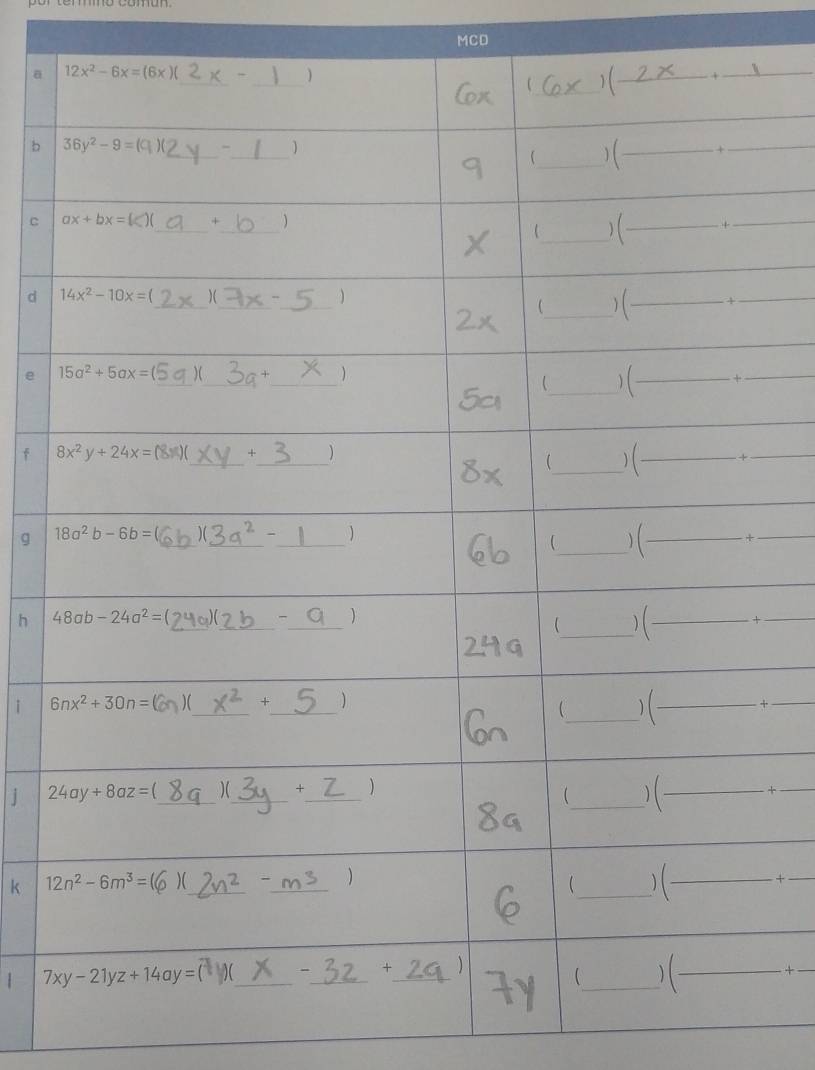 por término común.
MCD
a 12x² - 6x = (6x)( 2x - 1 ) 6x ( 6x )( 2x + 1
b 36y² - 9 = (9)( 2y - 1 ) 9 ( ____ )( ____ + ____
c ax + bx = (x)( a + b ) x ( ____ )( ____ + ____
d 14x² - 10x = ( 2x )( 7x - 5 ) 2x ( ____ )( ____ + ____
e 15a² + 5ax = ( 5a )( 3a + x ) 5a ( ____ )( ____ + ____
f 8x²y + 24x = (8x)( xy + 3 ) 8x ( ____ )( ____ + ____
g 18a²b - 6b = ( 6b )( 3a² - 1 ) 6b ( ____ )( ____ + ____
h 48ab - 24a² = ( 24a )( 2b - a ) 24a ( ____ )( ____ + ____
i 6nx² + 30n = (6n)( x² + 5 ) 6n ( ____ )( ____ + ____
j 24ay + 8az = ( 8a )( 3y + z ) 8a ( ____ )( ____ + ____
k 12n² - 6m³ = (6)( 2n² - m³ ) 6 ( ____ )( ____ + ____
l 7xy - 21yz + 14ay = (7y)( x - 3z + 2a ) 7y ( ____ )( ____ + ____